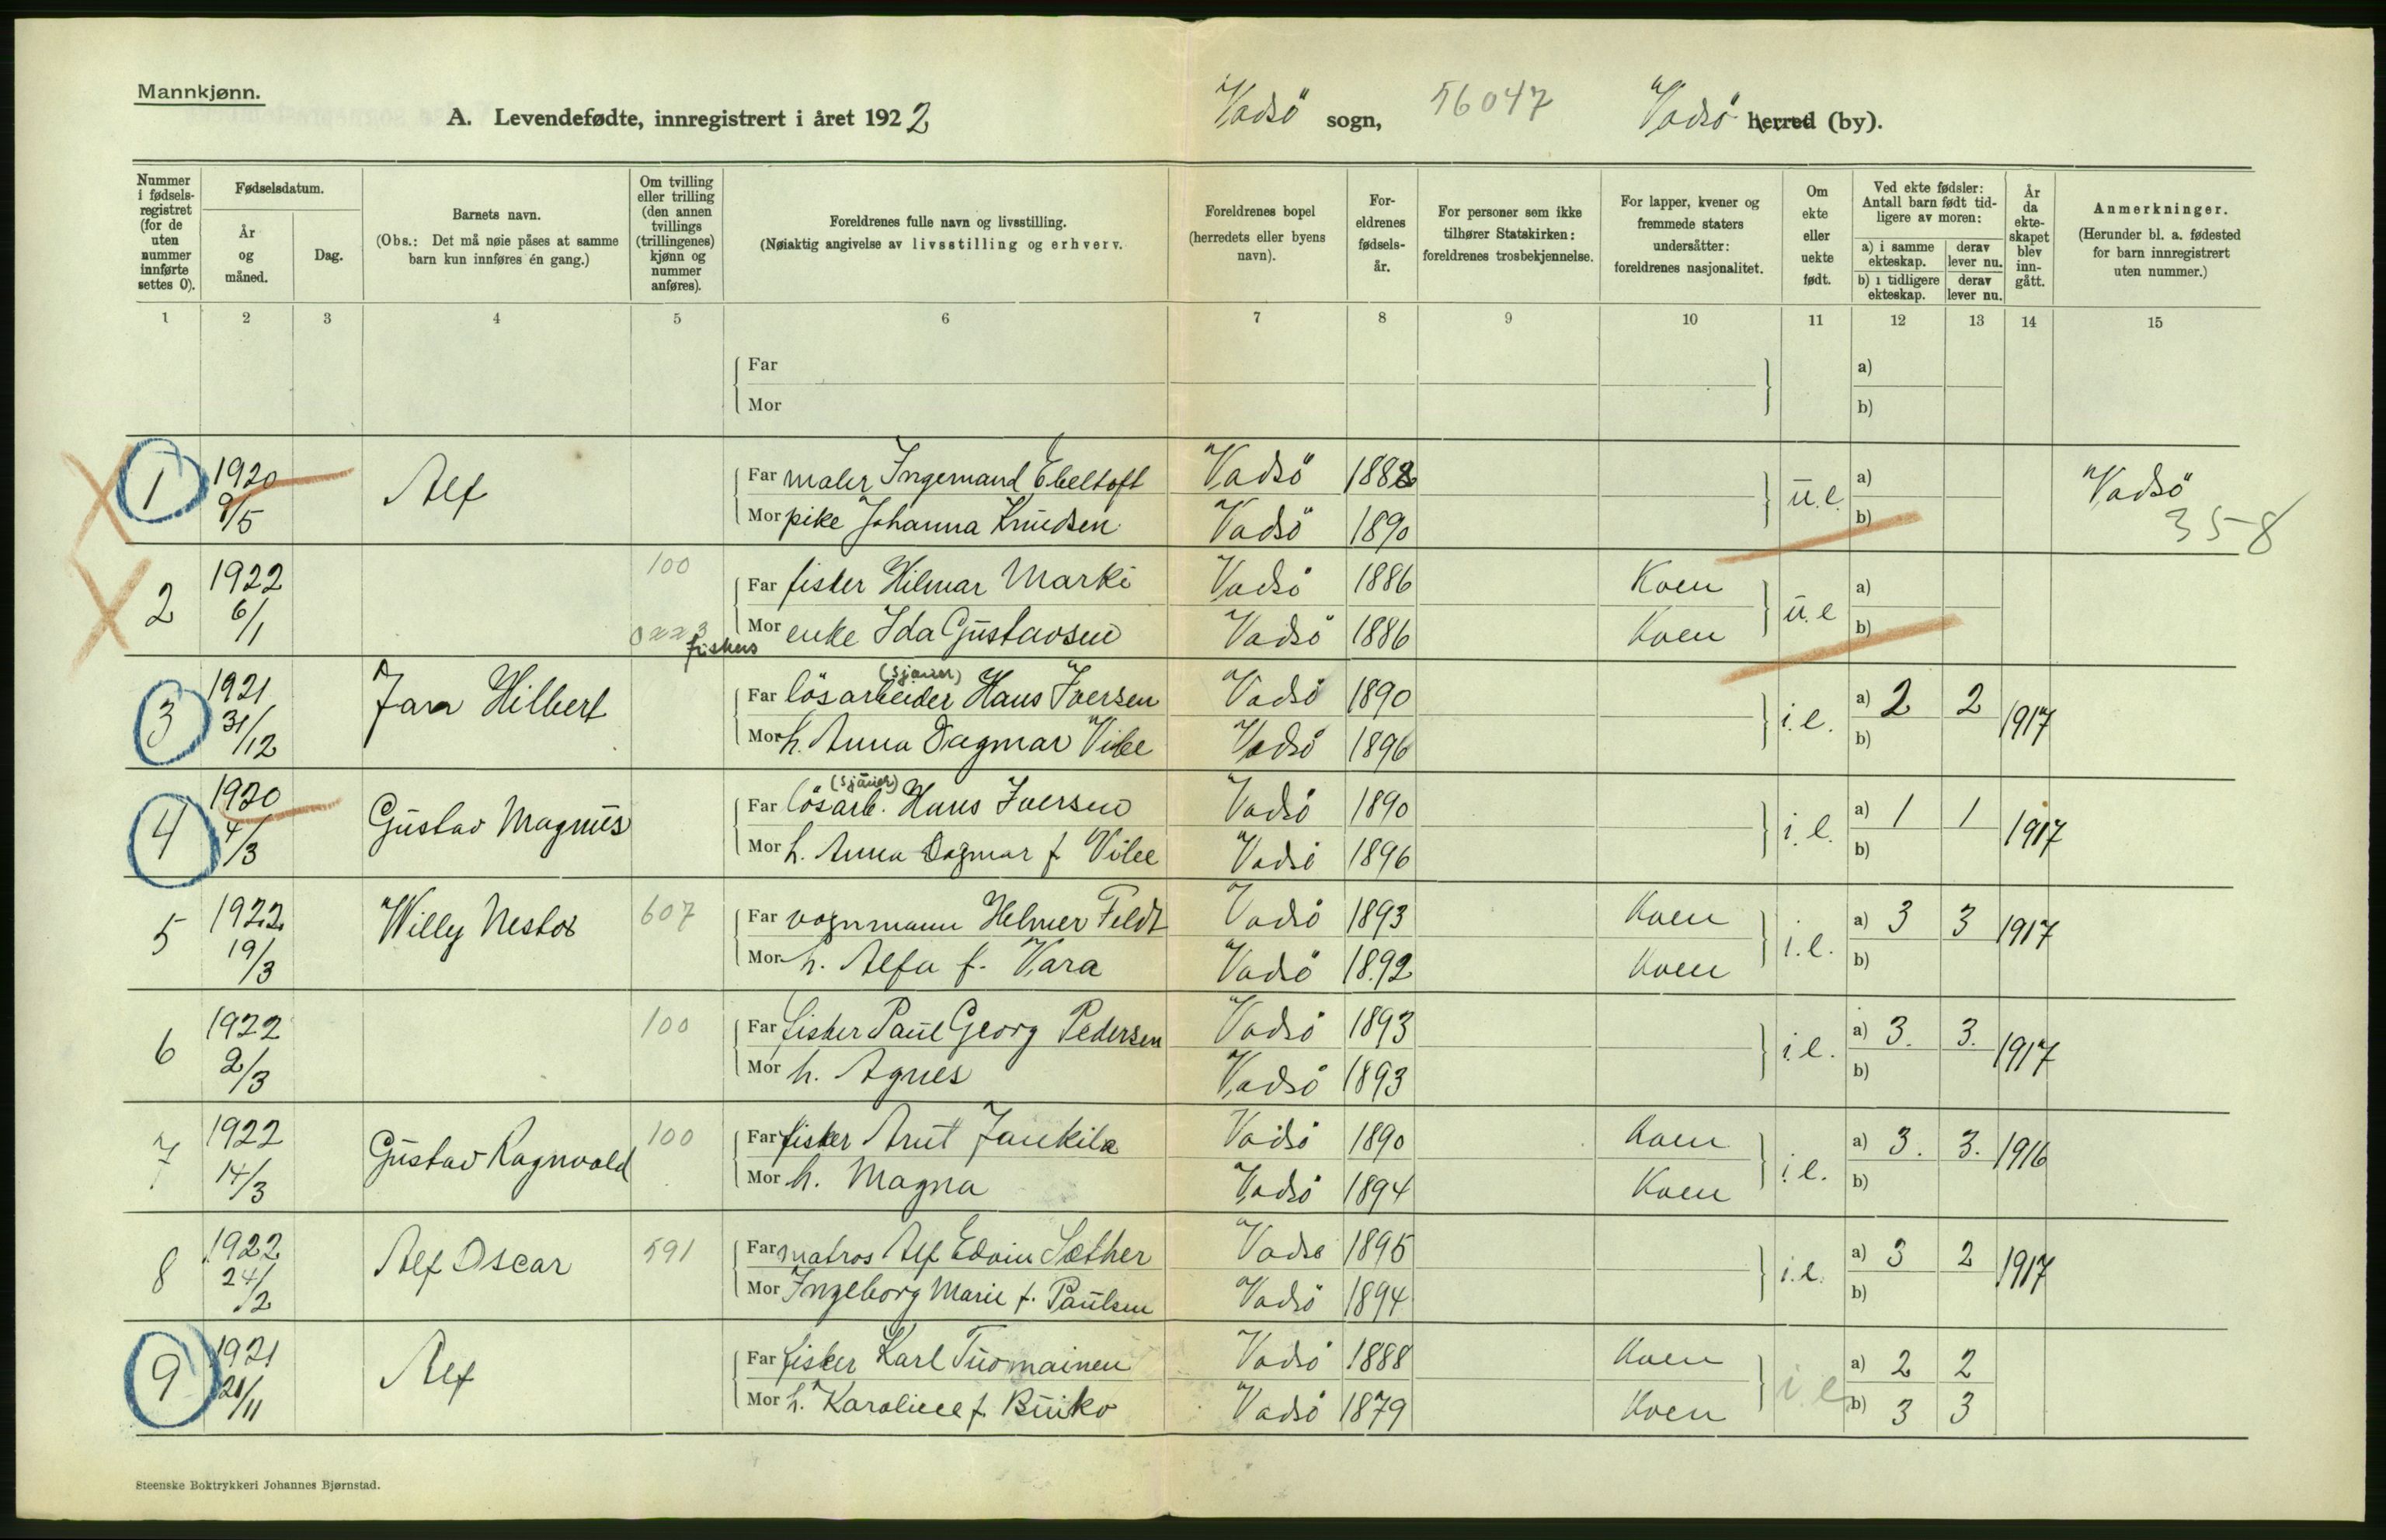 Mannkjønn.
A. Levendefødte, innregistrert i året 1922 Vadsö sogn, 56047 Vadsö herred (by).
Nummer i fødsels-registret (for de uten nummer innførte settes 0).
Fødselsdatum.
År og måned.
Dag.
Barnets navn.
(Obs.: Det må nøie påses at samme barn kun innføres én gang.)
Om tvilling eller trilling (den annen tvillings (trillingenes) kjønn og nummer anføres).
Foreldrenes fulle navn og livsstilling.
(Nøiaktig angivelse av livsstilling og erhverv.
Foreldrenes bopel (herredets eller byens navn).
For-eldrenes fødsels-år.
For personer som ikke tilhører Statskirken: foreldrenes trosbekjennelse.
For lapper, kvener og fremmede staters undersåtter: foreldrenes nasjonalitet.
Om ekte eller uekte født.
Ved ekte fødsler: Antall barn født tid-ligere av moren:
a) i samme ekteskap.
derav lever nu.
b) i tidligere ekteskap.
derav lever nu.
År da ekte-skapet blev inn-gått.
Anmerkninger.
(Herunder bl. a. fødested for barn innregistrert uten nummer.)
1 2 3 4 5 6 7 8 9 10 11 12 13 14 15
Far a)
Mor b)
1 1920 9/5 Alf
Far maler Ingemand Ebeltoft Vadsö 1888 ü.e. a) Vadsö
Mor pike Johanna Knüdsen Vadsö 1890 b) 358
2 1922 6/1 100
Far fisker Hilmar Marki Vadsö 1886 Kven ü.e a)
fiskers
Mor enke Ida Güstavsen Vadsö 1886 Kven b)
3 1921 31/12 Jan Hilbert
(sjauer)
Far lösarbeider Hans Iversen Vadsö 1890 i.e. a) 2 2 1917
Mor h. Anna Dagmar Vibe Vadsö 1896 b)
4 1920 4/3 Güstav Magnüs
(sjauer)
Far lösarb. Hans Iversen Vadsö 1890 i.e. a) 1 1 1917
Mor h. Anna Dagmar f Vibe Vadsö 1896 b)
5 1922 19/3 Willy Nestor 607
Far vognmann Helmer Feldt Vadsö 1893 Kven i.e. a) 3 3 1917
Mor h. Alfa f. Vara Vadsö 1892 Kven b)
6 1922 2/3 100
Far fisker Paül Georg Pedersen Vadsö 1893 i.e. a) 3. 3. 1917
Mor h. Agnes Vadsö 1893 b)
7 1922 14/3 Güstav Ragnvald 100
Far fisker Arüt Jankila Vadsö 1890 Kven i.e. a) 3. 3. 1916
Mor h. Magna Vadsö 1894 Kven b)
8 1922 24/2 Alf Oscar 591
Far matros Alf Edvin Sæther Vadsö 1895 i.e. a) 3 2 1917
Mor Ingeborg Marie f. Paülsen Vadsö 1894 b)
9 1921 21/11 Alf
Far fisker Karl Tüomainen Vadsö 1888 Kven i.e. a) 2 2
Mor h. Karoline f. Büiko Vadsö 1879 Kven b) 3 3
Steenske Boktrykkeri Johannes Bjørnstad.